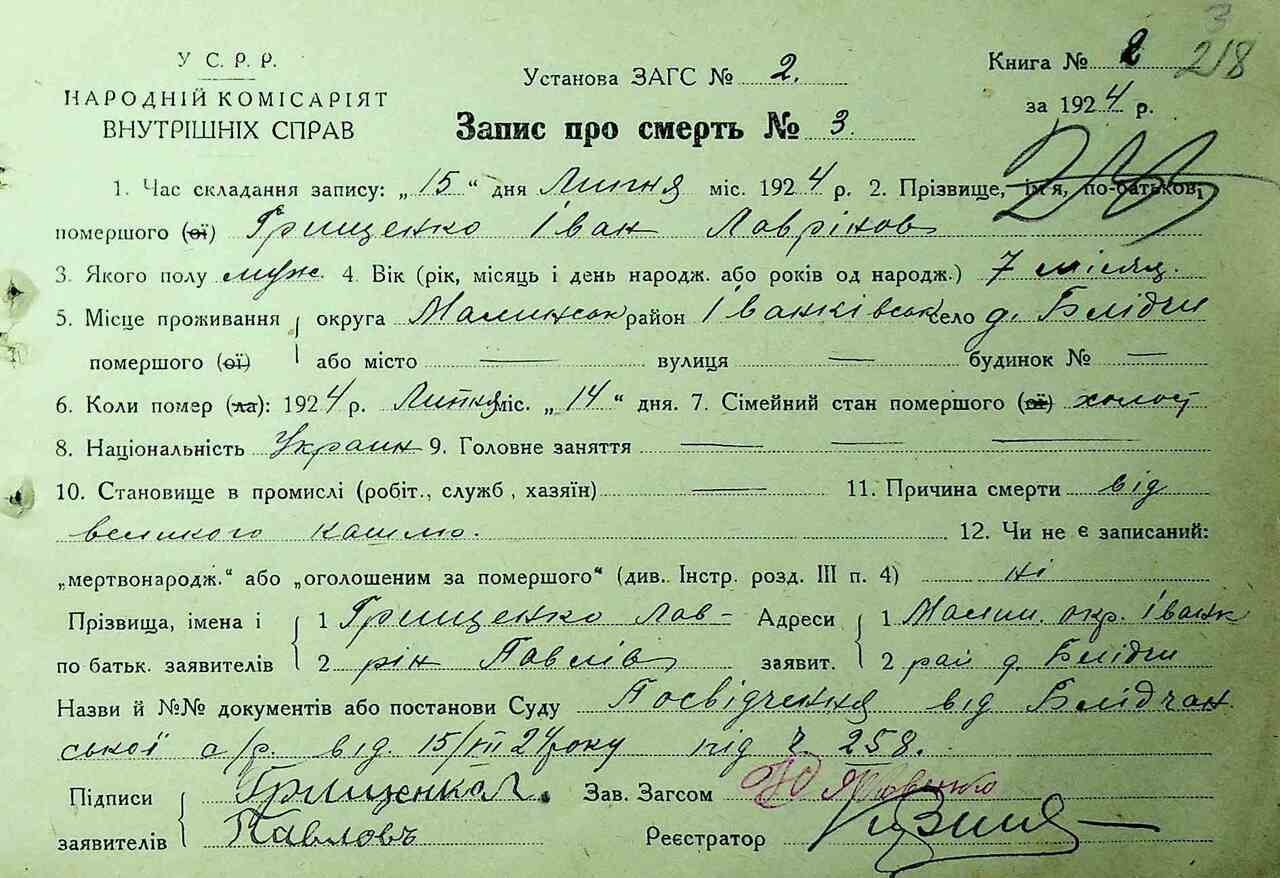 3
218
У С. Р. Р.
НАРОДНІЙ КОМІСАРІЯТ
ВНУТРІШНІХ СПРАВ
Установа ЗАГС № 2.
Книга № 2
за 1924 р.
Запис про смерть № 3.
1. Час складання запису: „15“ дня Липня міс. 1924 р. 2. Прізвище, ім'я, по-батькові
помершого (ої) Грищенко Іван Лаврінов
3. Якого полу муж. 4. Вік (рік, місяць і день народж. або років од народж.) 7 місяц.
5. Місце проживання округа Малинськ район Іванківськ село д. Блідчи
помершого (ої) або місто — вулиця — будинок № —
6. Коли помер (ла): 1924 р. Липня міс. „14“ дня. 7. Сімейний стан помершого (ої) холост
8. Національність Украин 9. Головне заняття — — —
10. Становище в промислі (робіт., служб, хазяїн) — 11. Причина смерти від
великого кашлю. 12. Чи не є записаний:
„мертвонародж.“ або „оголошеним за помершого“ (див. Інстр. розд. III п. 4) ні
Прізвища, імена і 1 Грищенко Лав- Адреси 1 Малин. окр. Іванк
по батьк. заявителів 2 рін Павлів заявит. 2 рай д. Блідчи
Назви й №№ документів або постанови Суду Посвідчення від Блідчан
ської с/р. від. 15/VII 24 року під ч. 258.
Підписи Грищенко Л. Зав. Загсом
заявителів Павловъ Реєстратор